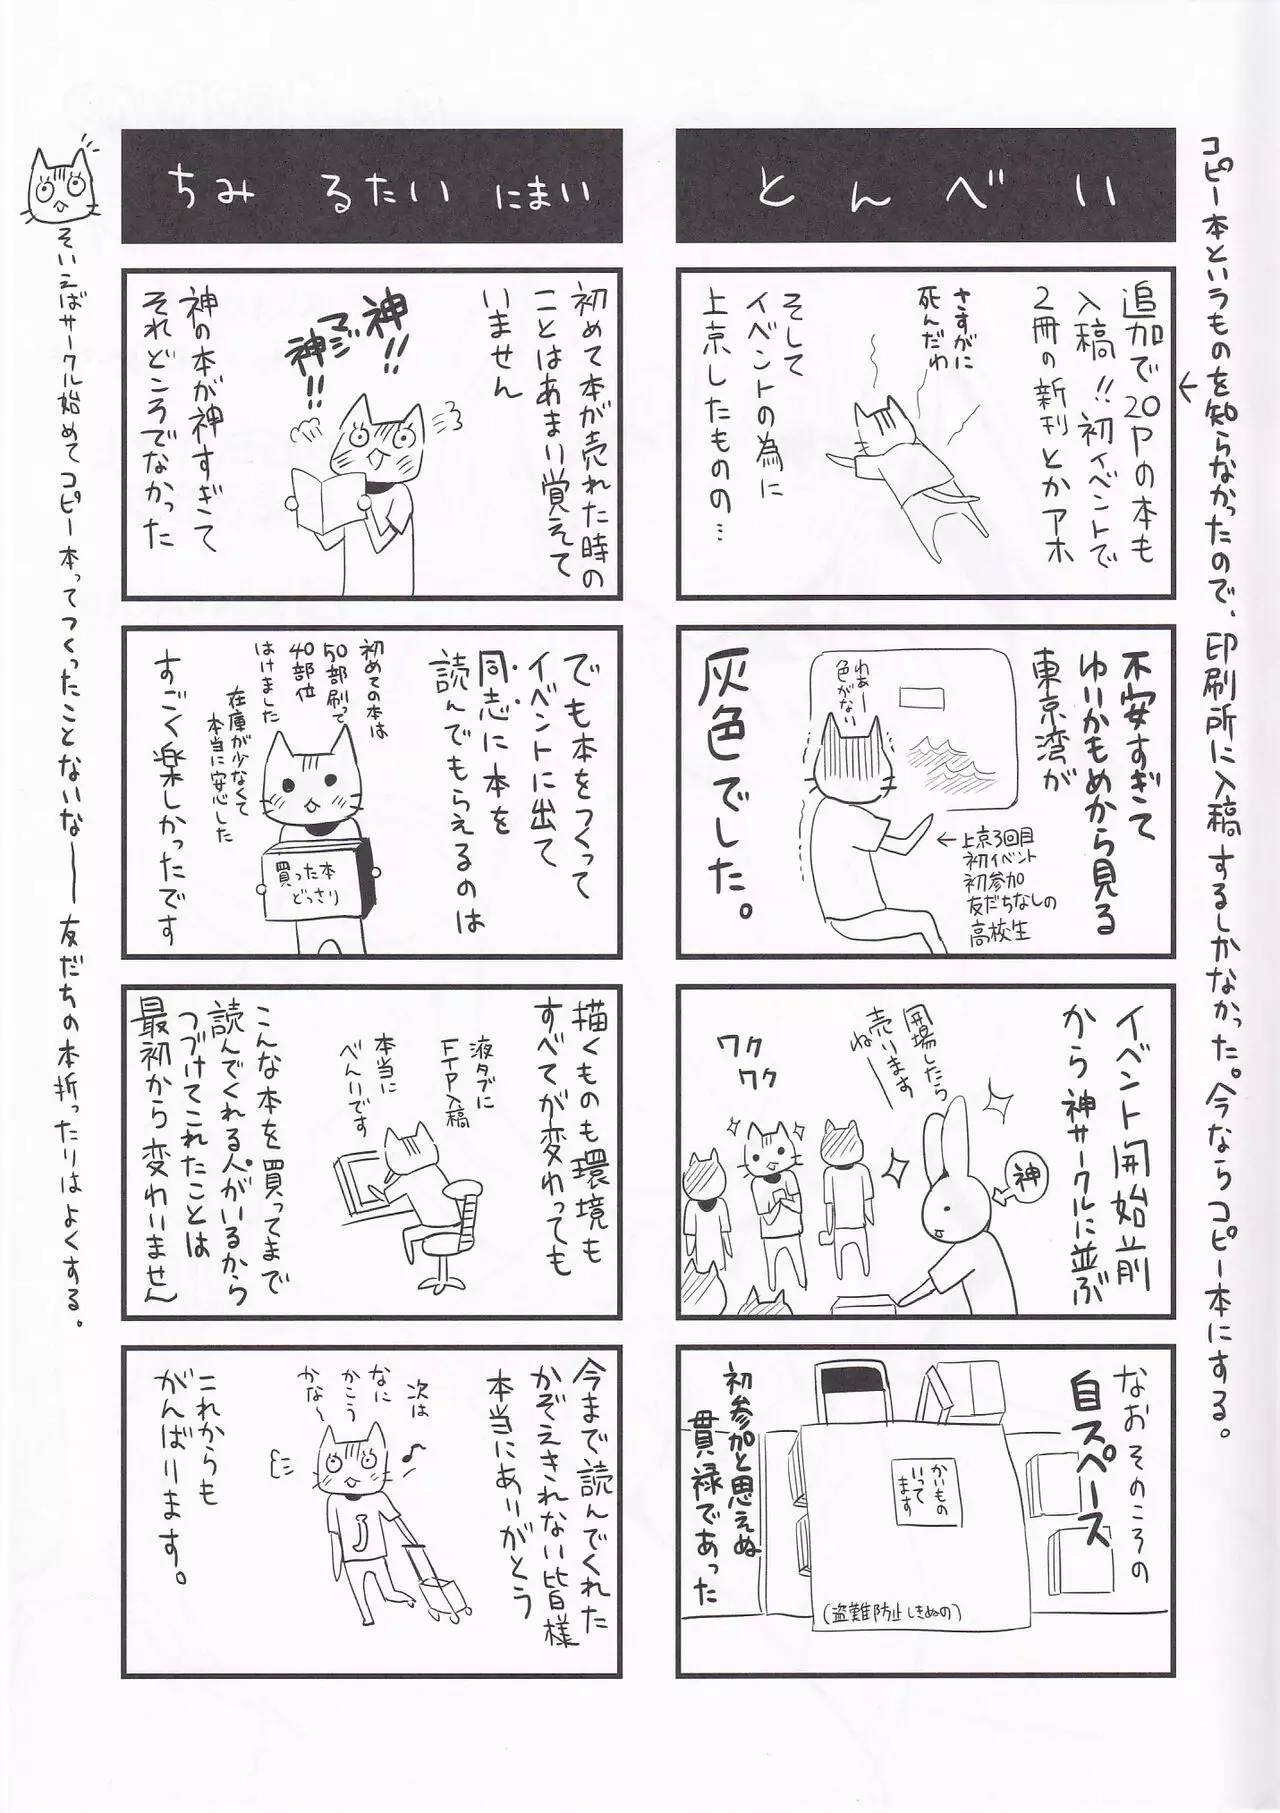 コピー本というものを知らなかったので、印刷所に入稿するしかなかった。今ならコピー本にする。
とんべい
追加で20Pの本も
入稿!!初イベントで
2冊の新刊とかアホ
さすがに
死んだわ
そして
イベントの為に
上京したものの…
不安すぎて
ゆりかもめから見る
東京湾が
わぁー
色がない
灰色でした。
←上京3回目
初イベント
初参加
友だちなしの
高校生
イベント開始前
から神サークルに並ぶ
神
開場したら
売りますね―
ワク
ワク
なおそのころの
自スペース
かいもの
いって
ます
(盗難防止しきぬの)
初参加と思えぬ
貫禄であった
ちみ るたい にまい
初めて本が売れた時の
ことはあまり覚えて
いません
神!!
マジ
神!!
神の本が神すぎて
それどころでなかった
でも本をつくって
イベントに出て
同志に本を
読んでもらえるのは
初めての本は
50部刷って
40部位
はけました
在庫が少なくて
本当に安心した
買った本
どっさり
すごく楽しかったです
描くものも環境も
すべてが変わっても
液タブに
FTP入稿
本当に
べんりです
こんな本を買ってまで
読んでくれる人がいるから
つづけてこれたことは
最初から変わりません
今まで読んでくれた
かぞえきれない皆様
本当にありがとう
次は
なに
かこう
かな～
♪
J
これからも
がんばります。
そいえばサークル始めてコピー本ってつくったことないな――友だちの本折ったりはよくする。